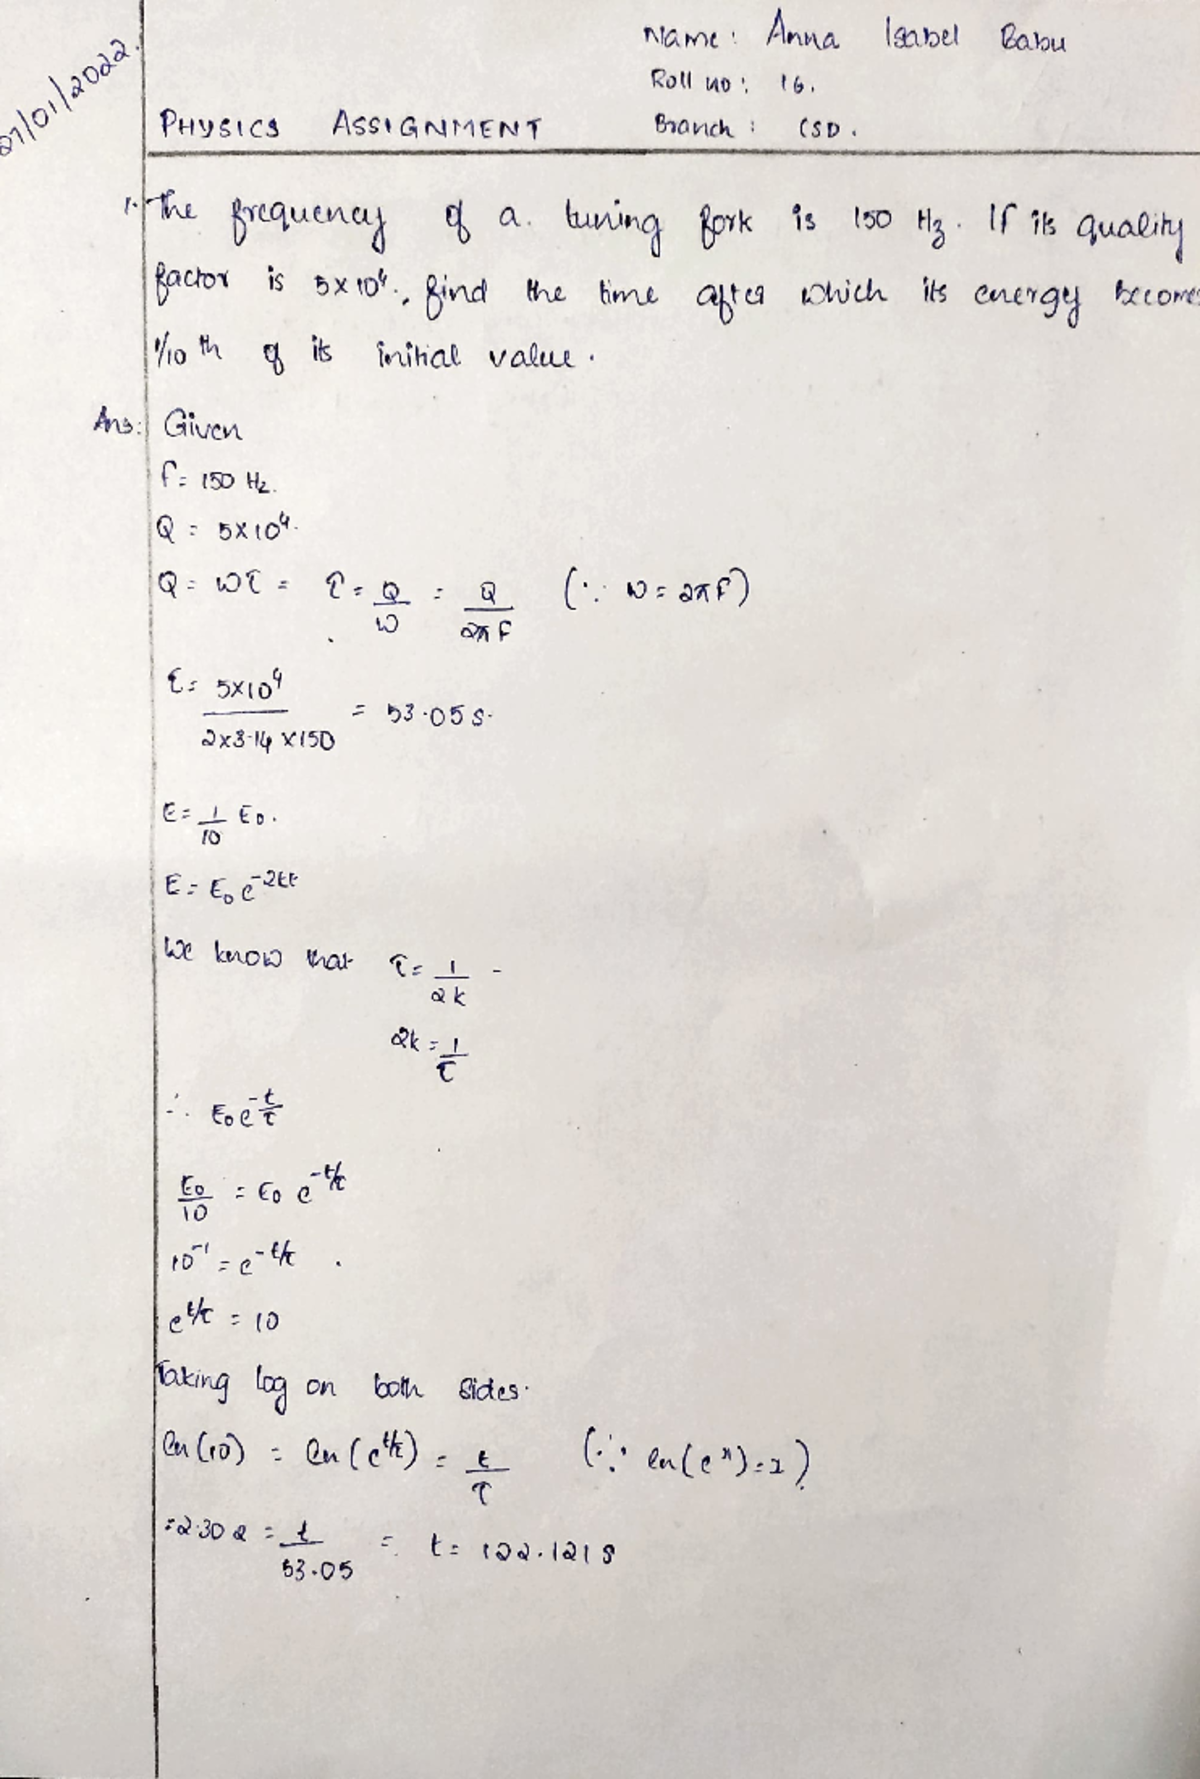 27/01/2022.
Name: Anna Isabel Babu
Roll no: 16.
PHYSICS ASSIGNMENT
Branch: CSD.
1. The frequency of a. tuning fork is 150 Hz. If its quality
factor is 5×10⁴., find the time after which its energy becomes
1/10 th of its initial value.
Ans: Given
f = 150 Hz.
Q = 5×10⁴.
Q = ωτ = τ = Q/ω = Q/2πf (∵ ω = 2πf)
τ = 5×10⁴/2×3.14×150 = 53.05 s.
E = 1/10 E₀.
E = E₀ e^-2kt
We know that τ = 1/2k -
2k = 1/τ
∴ E₀ e^-t/τ
E₀/10 = E₀ e^-t/τ
10⁻¹ = e^-t/τ .
e^t/τ = 10
Taking log on both sides.
ln(10) = ln(e^t/τ) = t/τ (∵ ln(e^x) = x)
= 2.302 = t/53.05 = t = 122.121 s